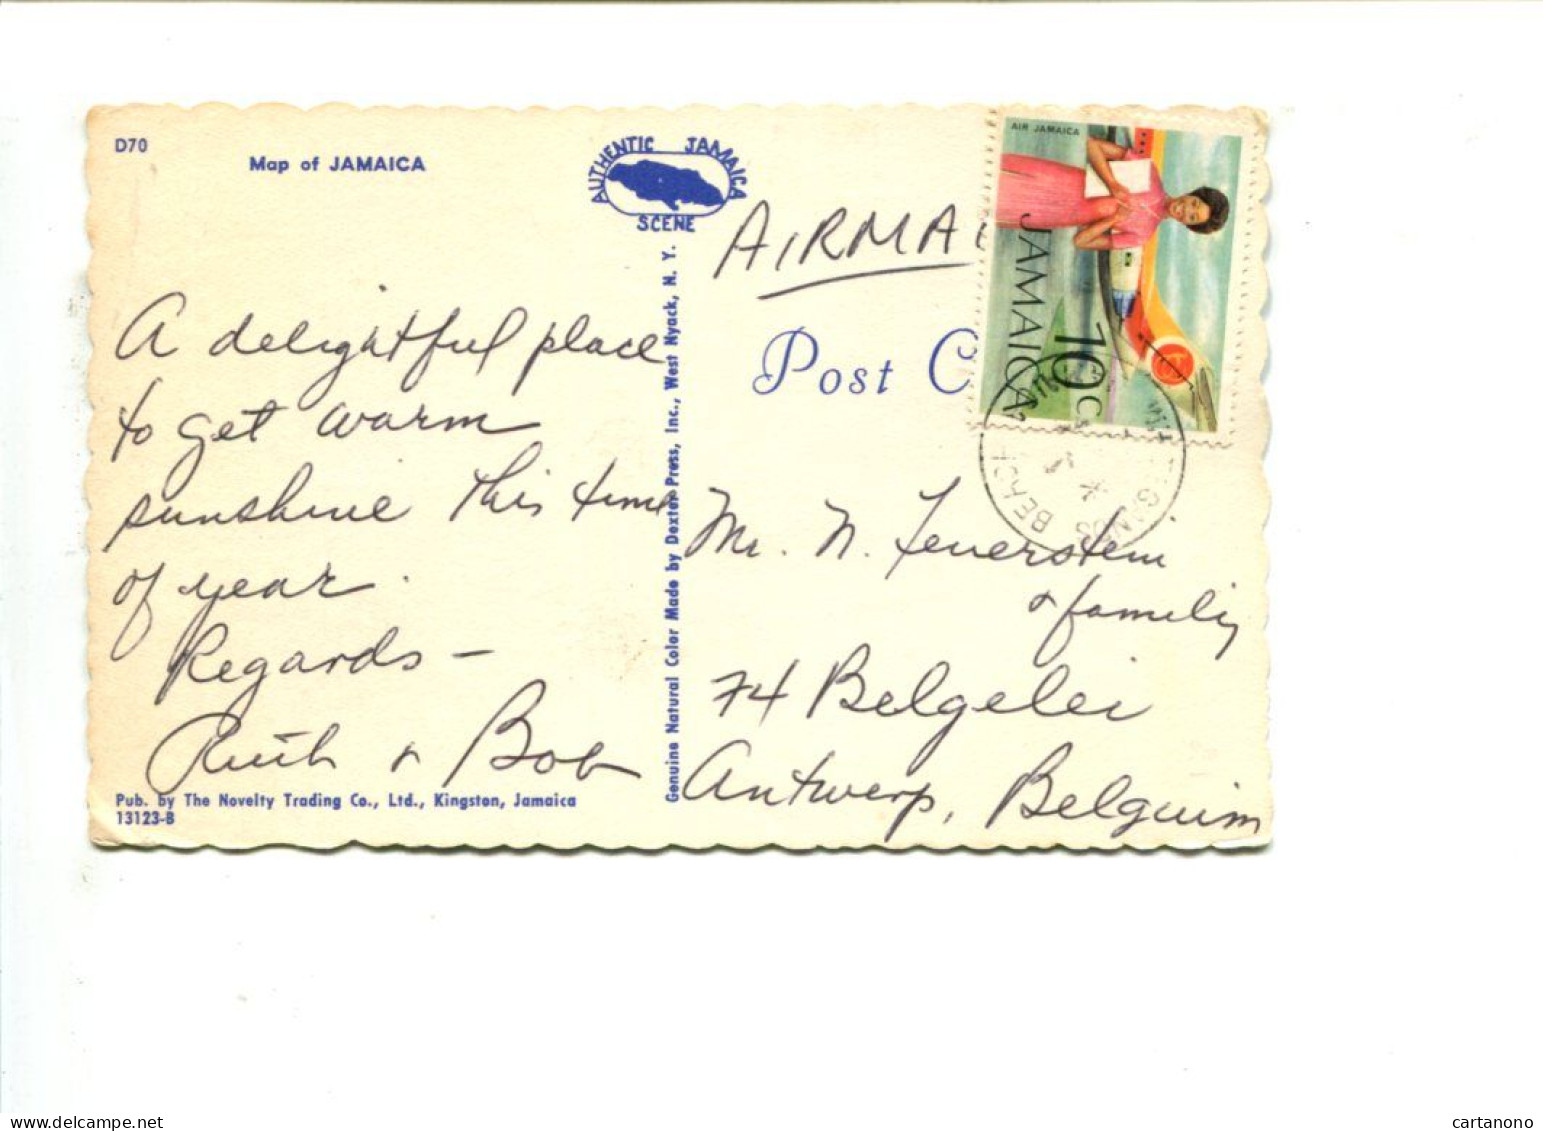 D70
Map of JAMAICA
AUTHENTIC JAMAICA
SCENE
AIRMAI
AIR JAMAICA
JAMAICA
10c
Post C
A delightful place
to get warm
sunshine this time
of year.
Regards –
Ruth & Bob
Pub. by The Novelty Trading Co., Ltd., Kingston, Jamaica
13123-B
Genuine Natural Color Made by Dexter Press, Inc., West Nyack, N. Y.
BEACH
Mr. N. Feuerstein
& family
74 Belgelei
Antwerp, Belguim
cartanono